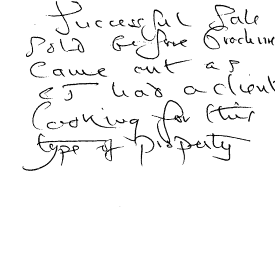 Successful Sale
Sold before Brochure
came out as
EJ had a client
looking for this
type of property